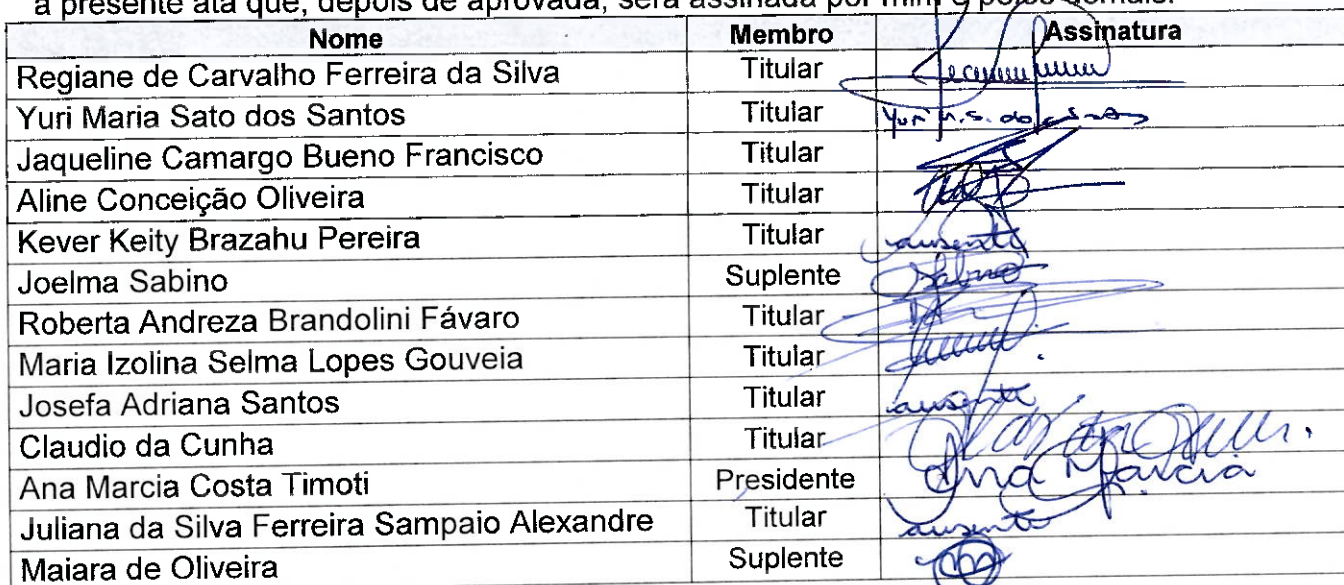 a presente ata que, depois de aprovada, será assinada por mim e pelos demais.
Nome Membro Assinatura
Regiane de Carvalho Ferreira da Silva Titular
Yuri Maria Sato dos Santos Titular Yuri M.S. do Santos
Jaqueline Camargo Bueno Francisco Titular
Aline Conceição Oliveira Titular
Kever Keity Brazahu Pereira Titular ausente
Joelma Sabino Suplente Sabino
Roberta Andreza Brandolini Fávaro Titular
Maria Izolina Selma Lopes Gouveia Titular
Josefa Adriana Santos Titular ausente
Claudio da Cunha Titular
Ana Marcia Costa Timoti Presidente Ana Marcia
Juliana da Silva Ferreira Sampaio Alexandre Titular ausente
Maiara de Oliveira Suplente